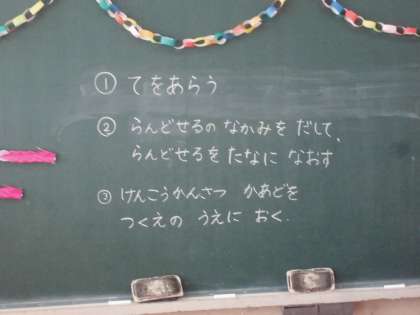 ① てをあらう
② らんどせるの なかみを だして、
らんどせるを たなに なおす
③ けんこうかんさつ かあどを
つくえの うえに おく.